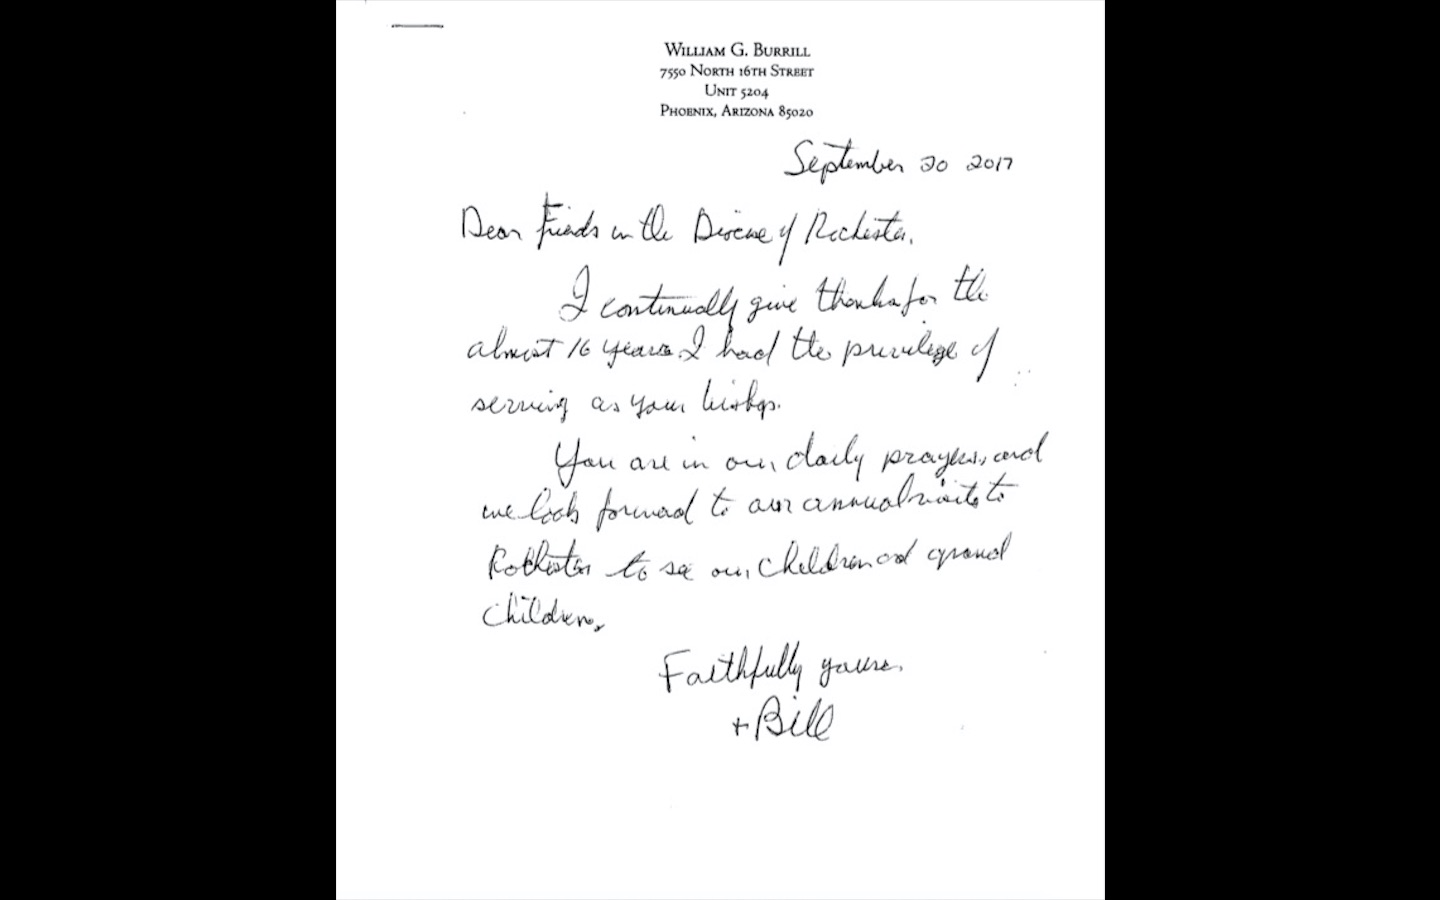 WILLIAM G. BURRILL
7550 NORTH 16TH STREET
UNIT 5204
PHOENIX, ARIZONA 85020
September 20 2017
Dear Friends in the Diocese of Rochester,
I continually give thanks for the
almost 16 years I had the privilege of
serving as your bishop.
You are in our daily prayers, and
we look forward to our annual visits to
Rochester to see our children and grand
children.
Faithfully yours,
+Bill